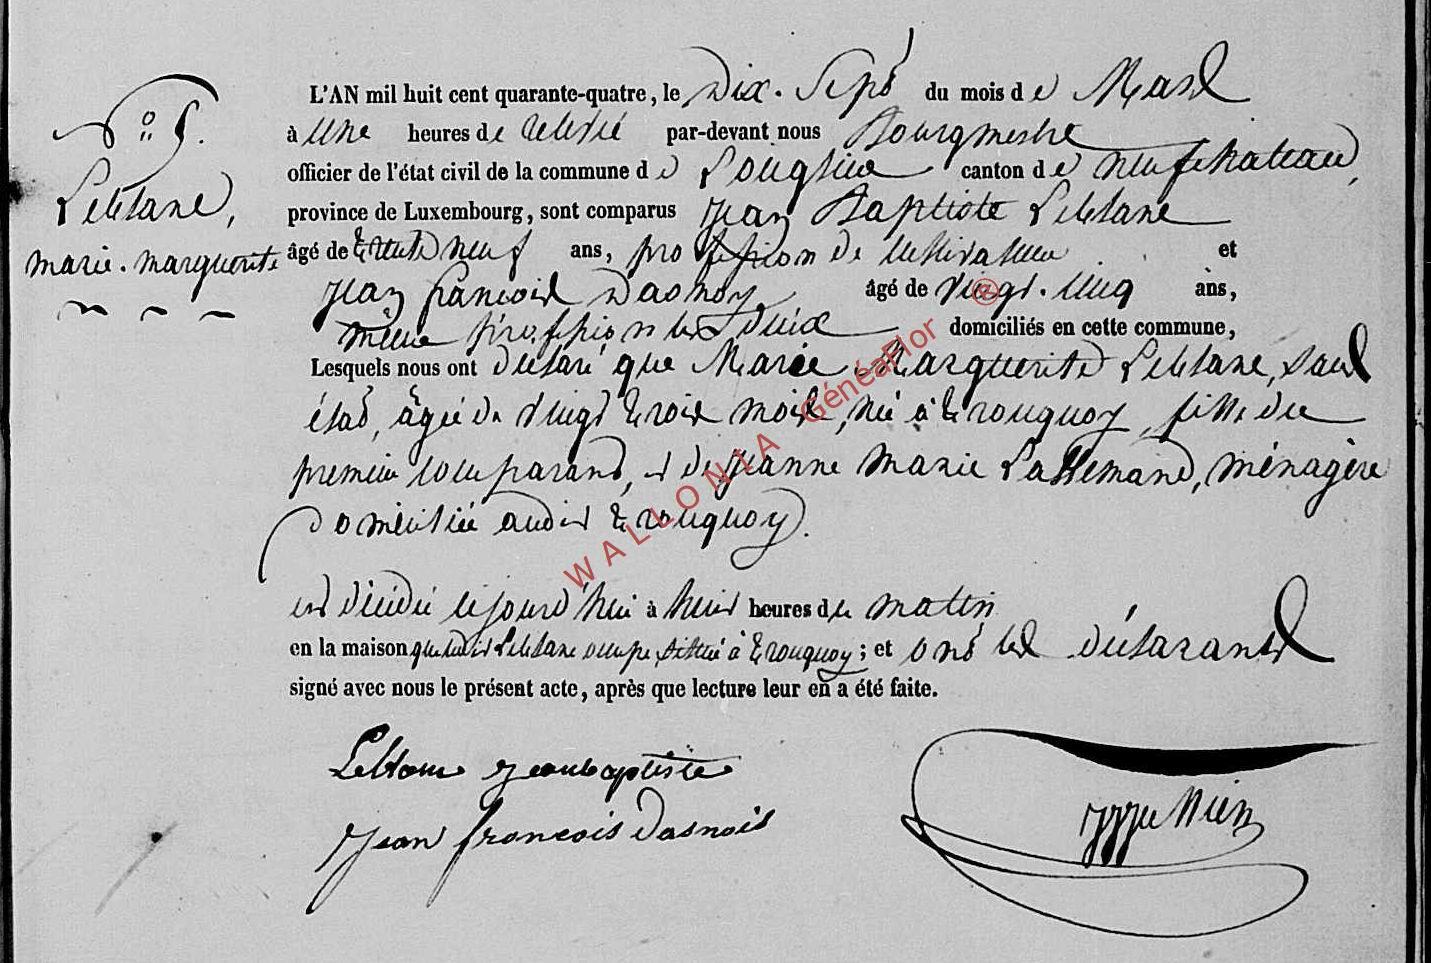 N° 5.
Leblanc,
marie-marguerite
L'AN mil huit cent quarante-quatre, le Dix-Sept du mois de Mars
à une heures de relevé par-devant nous Bourgmestre
officier de l'état civil de la commune de Louglier canton de neufchateau,
province de Luxembourg, sont comparus Jean Baptiste Leblanc
âgé de trente neuf ans, profession de cultivateur et
Jean françois Dasnoy âgé de vingt-cinq ans,
même profession les deux domiciliés en cette commune,
Lesquels nous ont déclaré que Marie Marguerite Leblanc, sans
état, âgée de vingt trois mois, née à tronquoy, fille du
premier comparant, et de Jeanne Marie Lallemand, ménagère
domiciliée audit tronquoy.
est décédée cejourd'hui à huit heures du matin
en la maison que ledit Leblanc occupe, située à tronquoy; et ont les déclarants
signé avec nous le présent acte, après que lecture leur en a été faite.
Leblanc jeanbaptiste
Jean françois dasnois
WALLONIA GénéaFlor ®